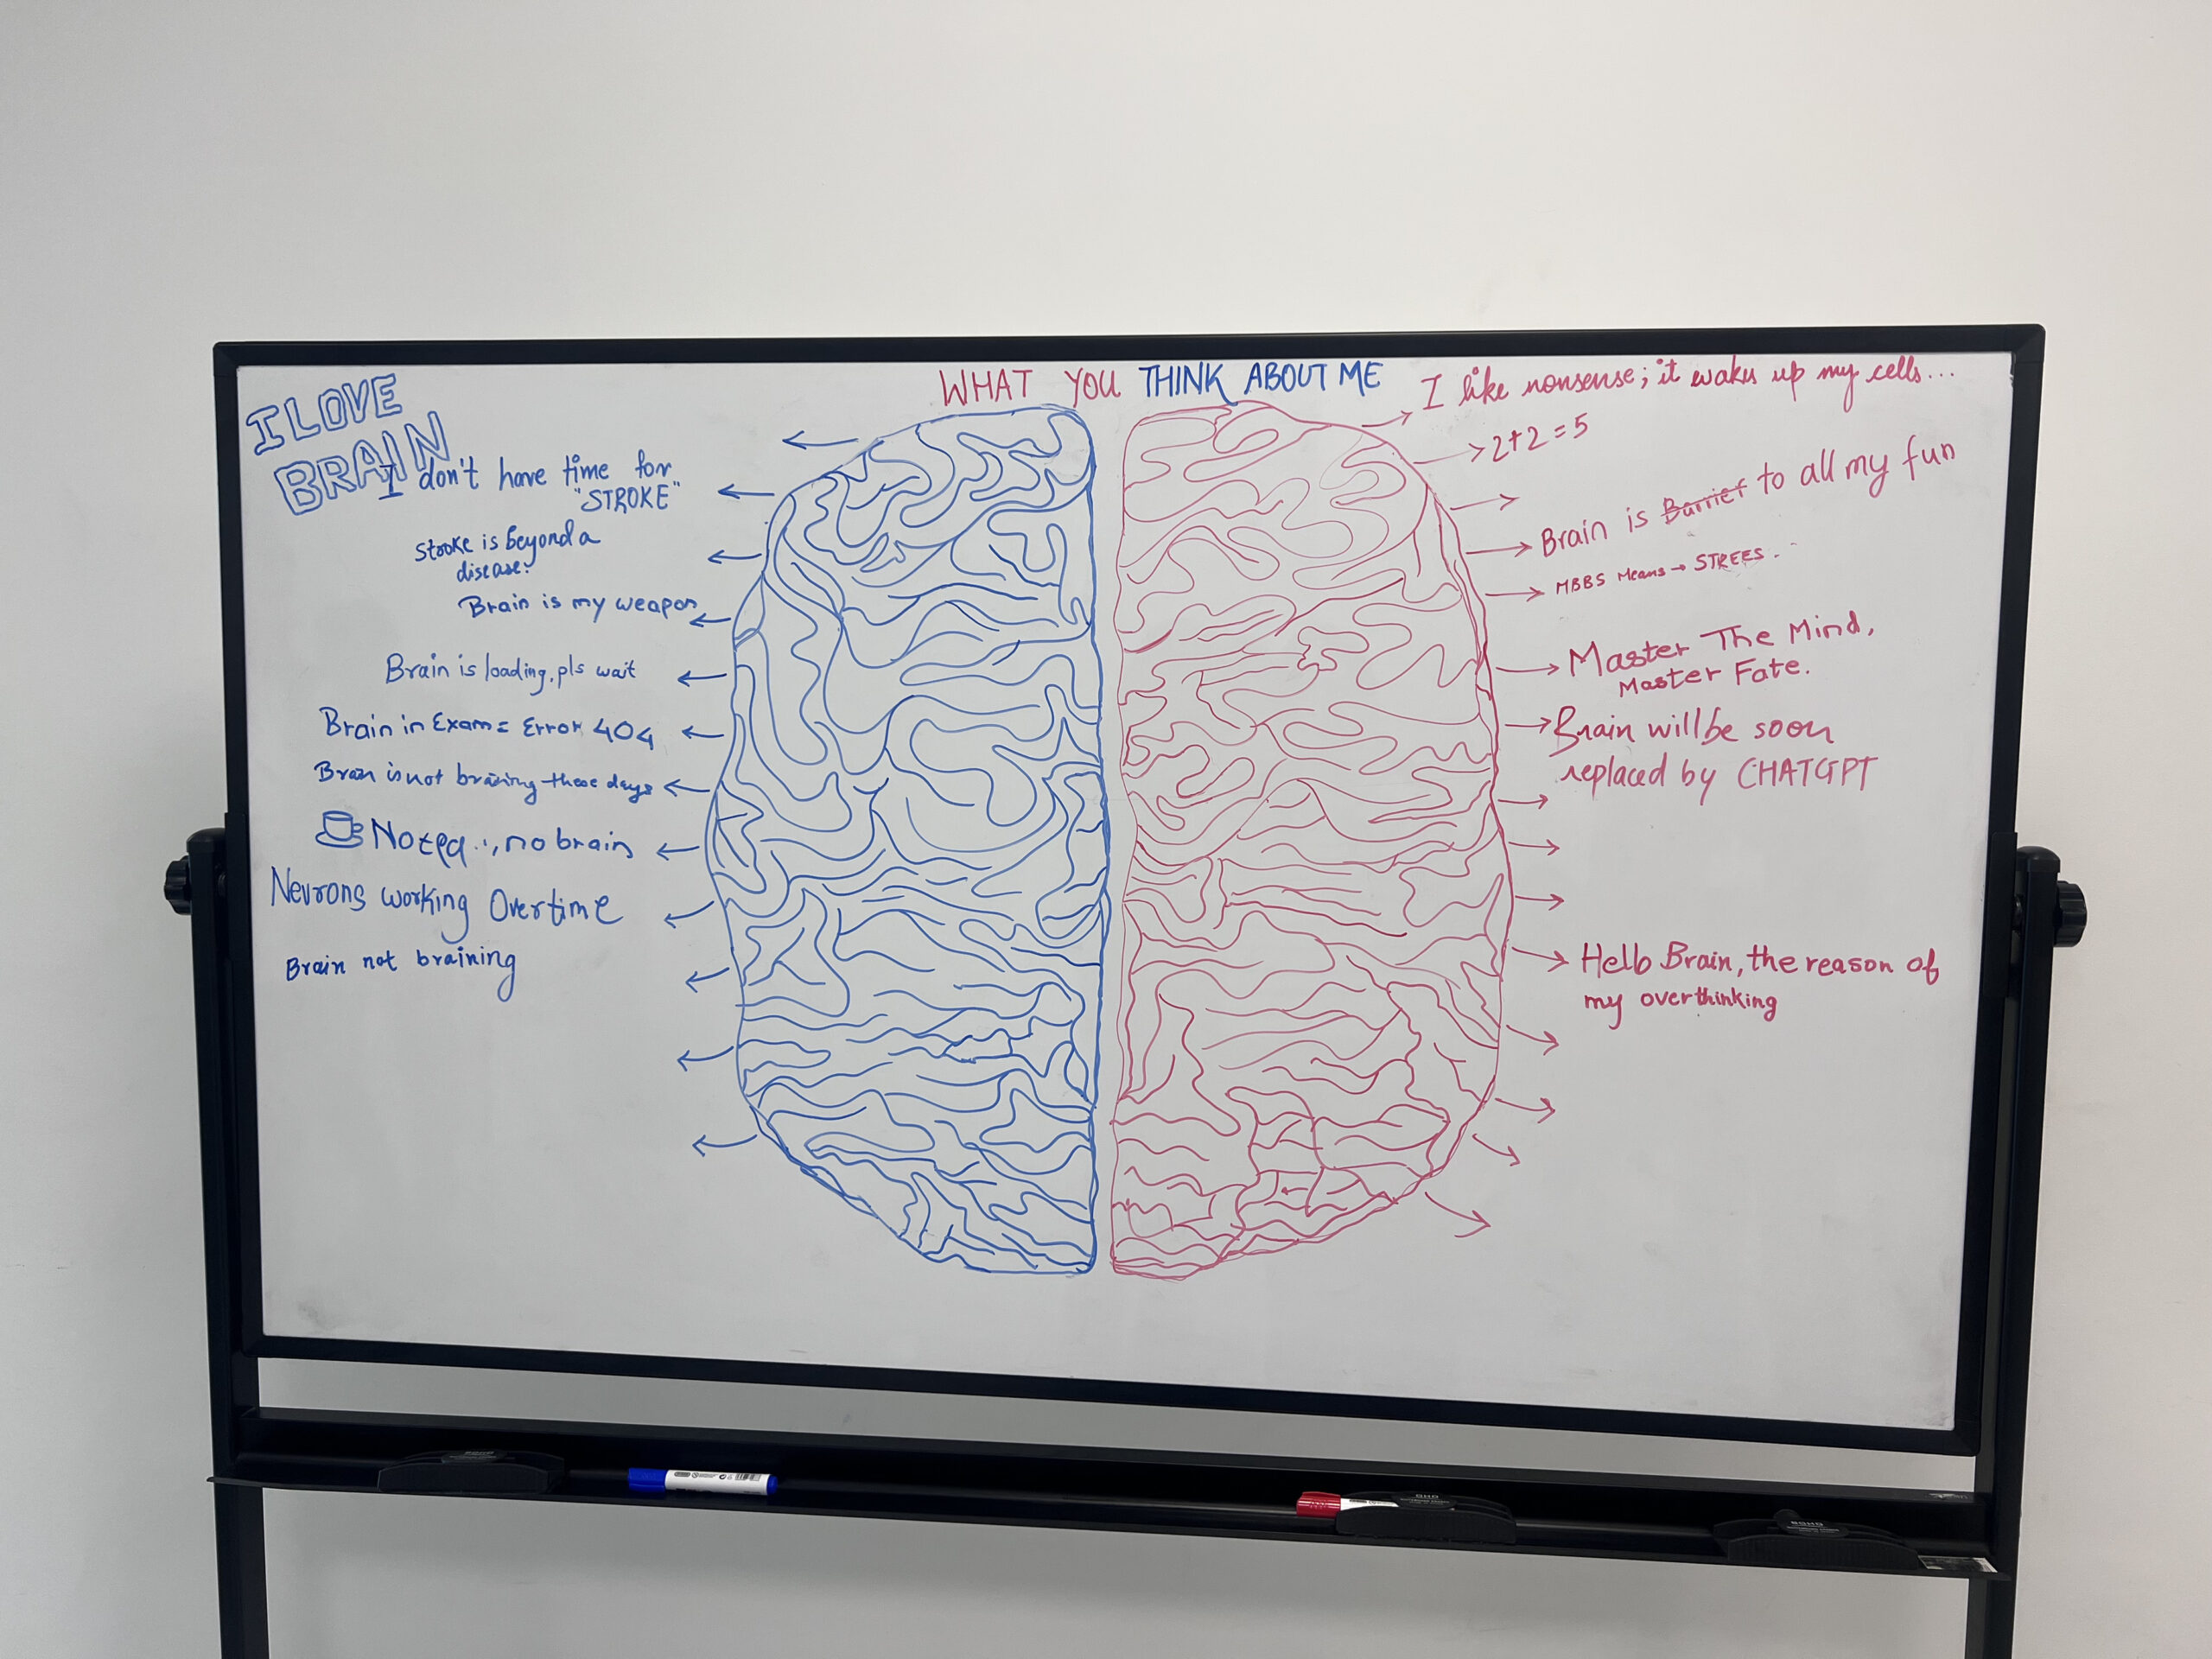 WHAT YOU THINK ABOUT ME
I LOVE
BRAIN
I don't have time for
"STROKE"
Stroke is beyond a
disease.
Brain is my weapon
Brain is loading, pls wait
Brain in Exam = Error 404
Brain is not braining these days
No tea .., no brain
Neurons working Overtime
Brain not braining
I like nonsense; it wakes up my cells...
2+2=5
Brain is Barrier to all my fun
MBBS Means → STREES.
Master The Mind,
Master Fate.
Brain will be soon
replaced by CHATGPT
Hello Brain, the reason of
my overthinking